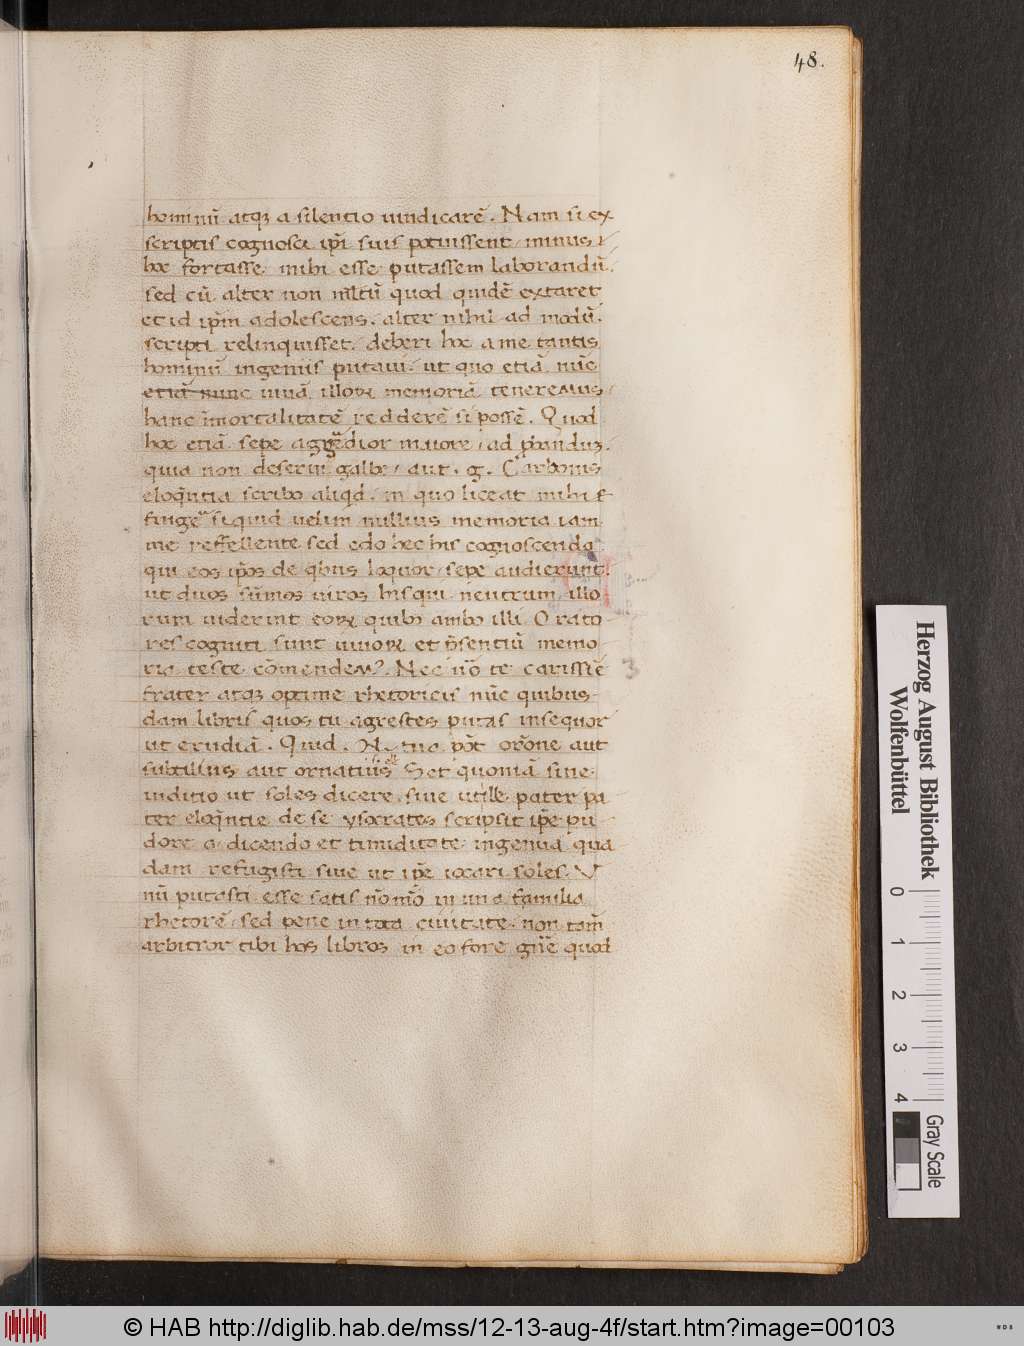 48.
hominū atqꝫ a silentio uindicarē. Nam si ex
scriptis cognosci ip̄i suis potuissent minus
hoc fortasse mihi esse putassem laborandū.
sed cū alter non mltū quod quidē extaret
et id ip̄m adolescens. alter nihil ad modū.
scripti relinquisset. deberi hoc a me tantis
hominū ingeniis putaui. ut quo etiā nūc
etiā nunc uiuā illoꝝ memoriā teneremus
hanc īmortalitatē redderē si possē. Quod
hoc etiā sepe agredior maiore ad p̄bandūꝫ.
quia non deserui galbe aut. g. Carbonis
eloq̄ntia scribo aliqd. in quo liceat mihi
fingē si quid uelim nullius memoria iam
me reffellente sed edo hec his cognoscenda
qui eos ip̄os de qbus loquor sepe audierunt.
ut duos sūmos uiros his qui neutrum illo
rum uiderint eoꝝ quibꝰ ambo illi Orato
res cogniti sunt uiuoꝝ et p̄sentiū memo
ria teste cōmendemꝰ. Nec uō te carissīē
frater atqꝫ optime rhetoricis nūc quibus
dam libris quos tu agrestes putas insequor
ut erudiā. Quid. N. tua pōt or̄one aut
subtilius aut ornatius Set quoniā siue
iuditio ut soles dicere siue ut ille pater pa
ter eloq̄ntie de se ysocrates scripsit ip̄e pu
dore a dicendo et timiditate ingenua qua
dam refugisti siue ut ip̄e iocari soles. V
nū putasti esse satis nō mō in una familia
rhetorē sed pene in tota ciuitate. non tam̄
arbitror tibi hos libros in eo fore gn̄e quod
3
Herzog August Bibliothek
Wolfenbüttel
0 1 2 3 4
Gray Scale
© HAB http://diglib.hab.de/mss/12-13-aug-4f/start.htm?image=00103